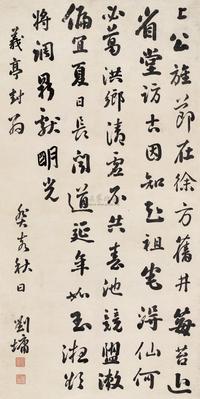 上公旌節在徐方舊井莓苔近
寢堂訪古因知彭祖宅得仙何
必葛洪鄉清虛不共春池競盥漱
偏宜夏日長聞道延年如玉液欲
將調鼎獻明光
義亭封翁
癸亥秋日 劉墉